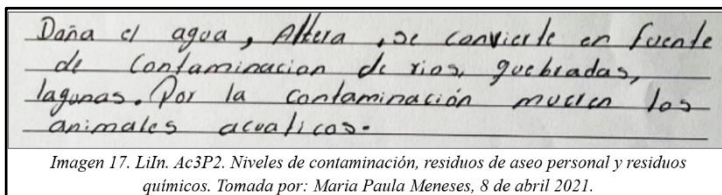 Daña el agua, Altera, se convierte en fuente
de contaminacion de rios, quebradas,
lagunas. Por la contaminación mueren los
animales acuaticos.
Imagen 17. LiIn. Ac3P2. Niveles de contaminación, residuos de aseo personal y residuos
químicos. Tomada por: Maria Paula Meneses, 8 de abril 2021.